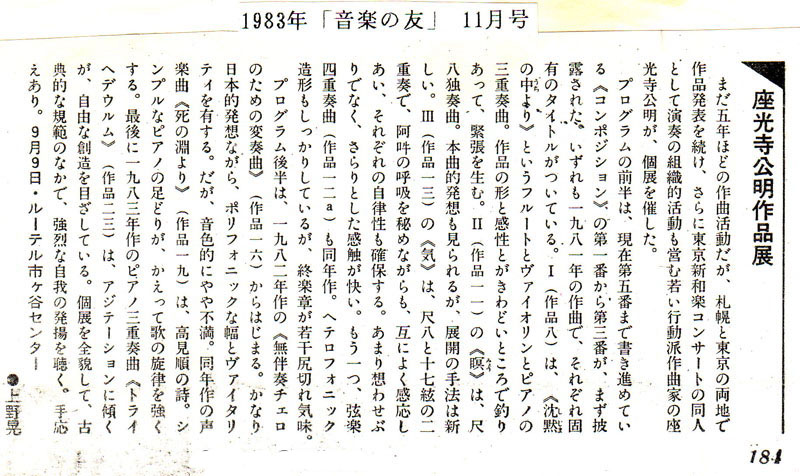 1983年「音楽の友」 11月号
座光寺公明作品展
まだ五年ほどの作曲活動だが、札幌と東京の両地で
作品発表を続け、さらに東京新和楽コンサートの同人
として演奏の組織的活動も営む若い行動派作曲家の座
光寺公明が、個展を催した。
プログラムの前半は、現在第五番まで書き進めてい
る《コンポジション》の第一番から第三番が、まず披
露された。いずれも一九八一年の作曲で、それぞれ固
有のタイトルがついている。Ⅰ（作品八）は、《沈黙
の中より》というフルートとヴァイオリンとピアノの
三重奏曲。作品の形と感性とがきわどいところで釣り
あって、緊張を生む。Ⅱ（作品一一）の《瞑》は、尺
八独奏曲。本曲的発想も見られるが、展開の手法は新
しい。Ⅲ（作品一三）の《気》は、尺八と十七絃の二
重奏で、阿吽の呼吸を秘めながらも、互によく感応し
あい、それぞれの自律性も確保する。あまり想わせぶ
りでなく、さらりとした感触が快い。もう一つ、弦楽
四重奏曲（作品一二a）も同年作。ヘテロフォニック
造形もしっかりしているが、終楽章が若干尻切れ気味。
プログラム後半は、一九八二年作の《無伴奏チェロ
のための変奏曲》（作品一六）からはじまる。かなり
日本的発想ながら、ポリフォニックな幅とヴァイタリ
ティを有する。だが、音色的にやや不満。同年作の声
楽曲《死の淵より》（作品一九）は、高見順の詩。シ
ンプルなピアノの足どりが、かえって歌の旋律を強く
する。最後に一九八三年作のピアノ三重奏曲《トライ
ヘデウルム》（作品二三）は、アジテーションに傾く
が、自由な創造を目ざしている。個展を全貌して、古
典的な規範のなかで、強烈な自我の発揚を聴く。手応
えあり。９月９日・ルーテル市ヶ谷センター
●上野晃
184